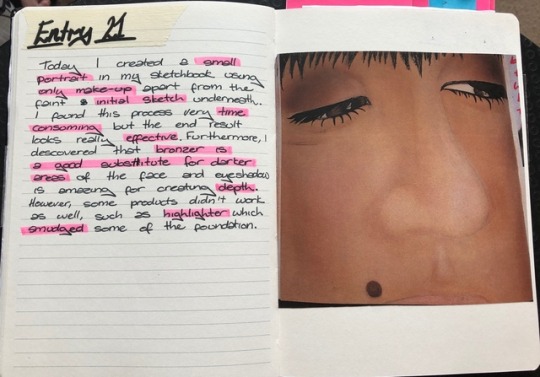 Entry 21
Today I created a small
portrait in my sketchbook using
only make-up apart from the
faint & initial sketch underneath.
I found this process very time
consuming but the end result
looks really effective. Furthermore, I
discovered that bronzer is
a good substitute for darker
areas of the face and eyeshadow
is amazing for creating depth.
However, some products didn't work
as well, such as highlighter which
smudged some of the foundation.